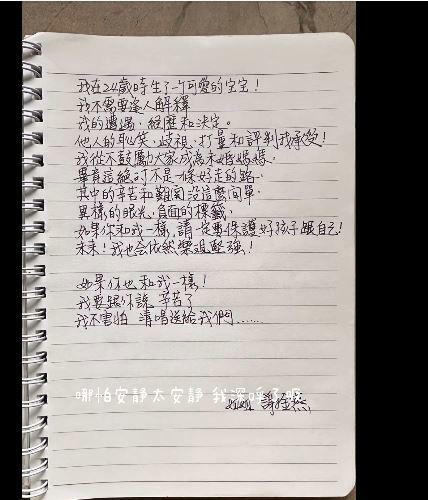 我在24歲時生了一个可愛的宝宝！
我不需要逢人解釋
我的遭遇．經歷和決定。
他人的恥笑、歧視、打量和評判我承受！
我從不鼓勵大家成為未婚媽媽，
畢竟這絕對不是一條好走的路，
其中的辛苦和難關没這麼简單，
異樣的眼光，負面的標籤，
如果你和我一樣，請一定要保護好孩子跟自己！
未來！我也会依然樂观堅強！
如果你也和我一樣！
我要跟你說 辛苦了
我不害怕 請唱送給我們......
哪怕安静太安静 我深呼了吸